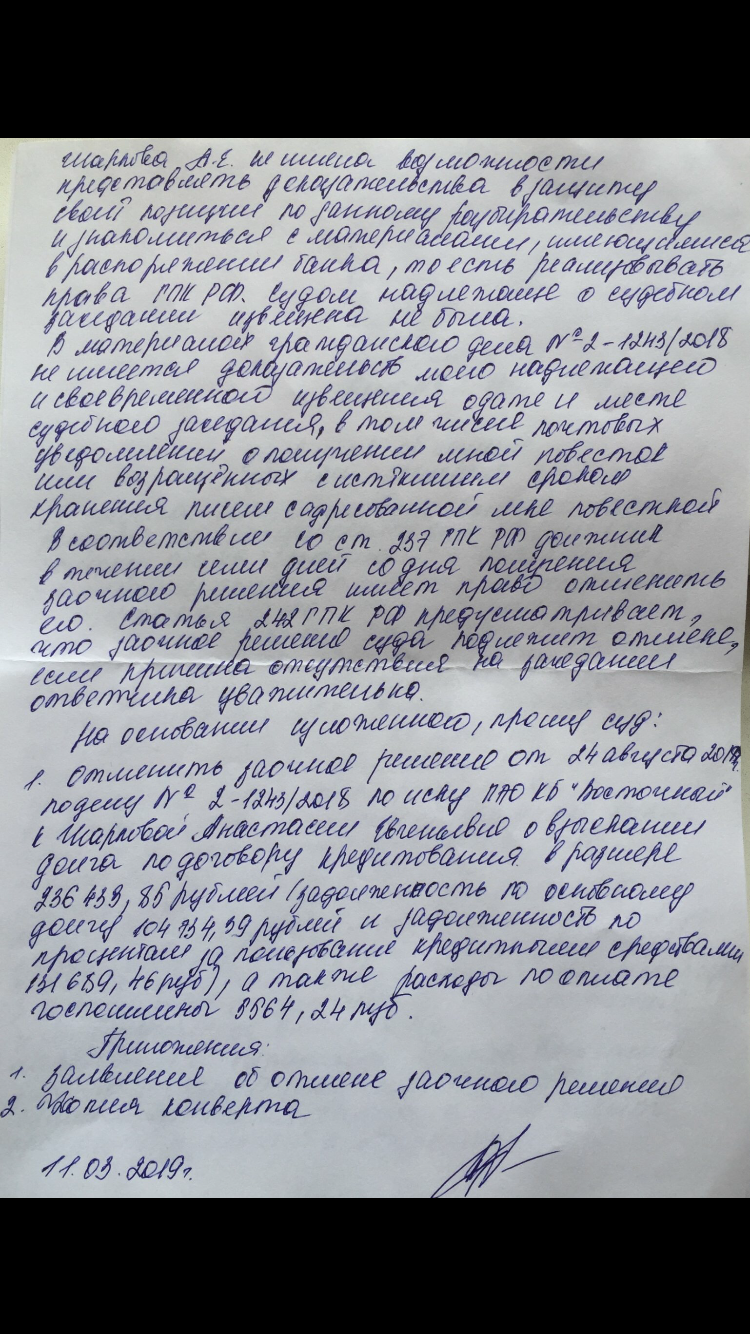 Шарпова А.Е. не имела возможности
представлять доказательства в защиту
своей позиции по данному разбирательству
и знакомиться с материалами, имеющимися
в распоряжении банка, то есть реализовывать
права ГПК РФ. Судом надлежаще о судебном
заседании извещена не была.
В материалах гражданского дела № 2-1243/2018
не имеется доказательств моего надлежащего
и своевременного извещения о дате и месте
судебного заседания, в том числе почтовых
уведомлений о получении мной повесток
или возращённых с истёкшим сроком
хранения писем с адресованной мне повесткой
В соответствии со ст. 237 ГПК РФ должник
в течении семи дней со дня получения
заочного решения имеет право отменить
его. Статья 242 ГПК РФ предусматривает,
что заочное решение суда подлежит отмене,
если причина отсутствия на заседании
ответчика уважительна.
На основании изложенного, прошу суд:
1. Отменить заочное решение от 24 августа
по делу № 2-1243/2018 по иску ПАО КБ "Восточный"
к Шарповой Анастасии Евгеньевне о взыскании
долга по договору кредитования в размере
236 433, 85 рублей (задолженность по основному
долгу 104 734,39 рублей и задолженность по
процентам за пользование кредитными средствами
131 699, 46 руб), а также расходы по оплате
госпошлины 5564, 24 руб.
Приложения:
1. Заявление об отмене заочного решения
2. Копия конверта
11.03.2019г.